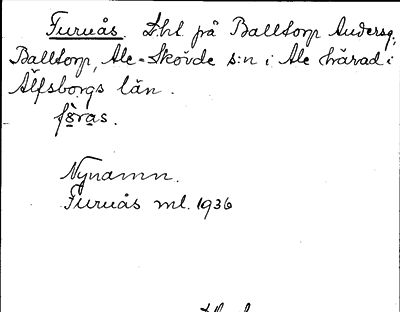 Furuås. Lht. på Balltorp Andersg.,
Balltorp, Ale-Skövde s:n i Ale härad i
Älfsborgs län.
fòras.
Nynamn.
Furuås ml. 1936